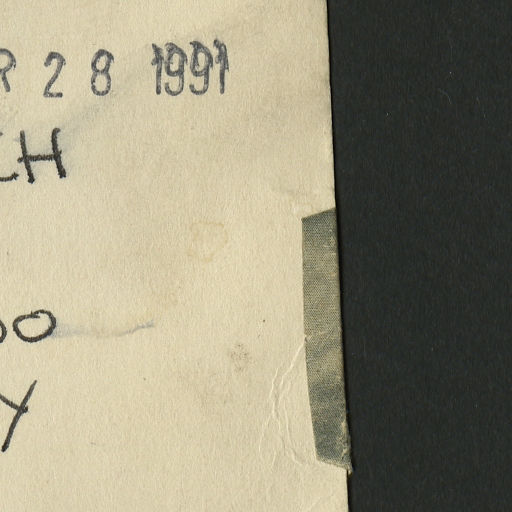 R 2 8 1991
CH
00
Y